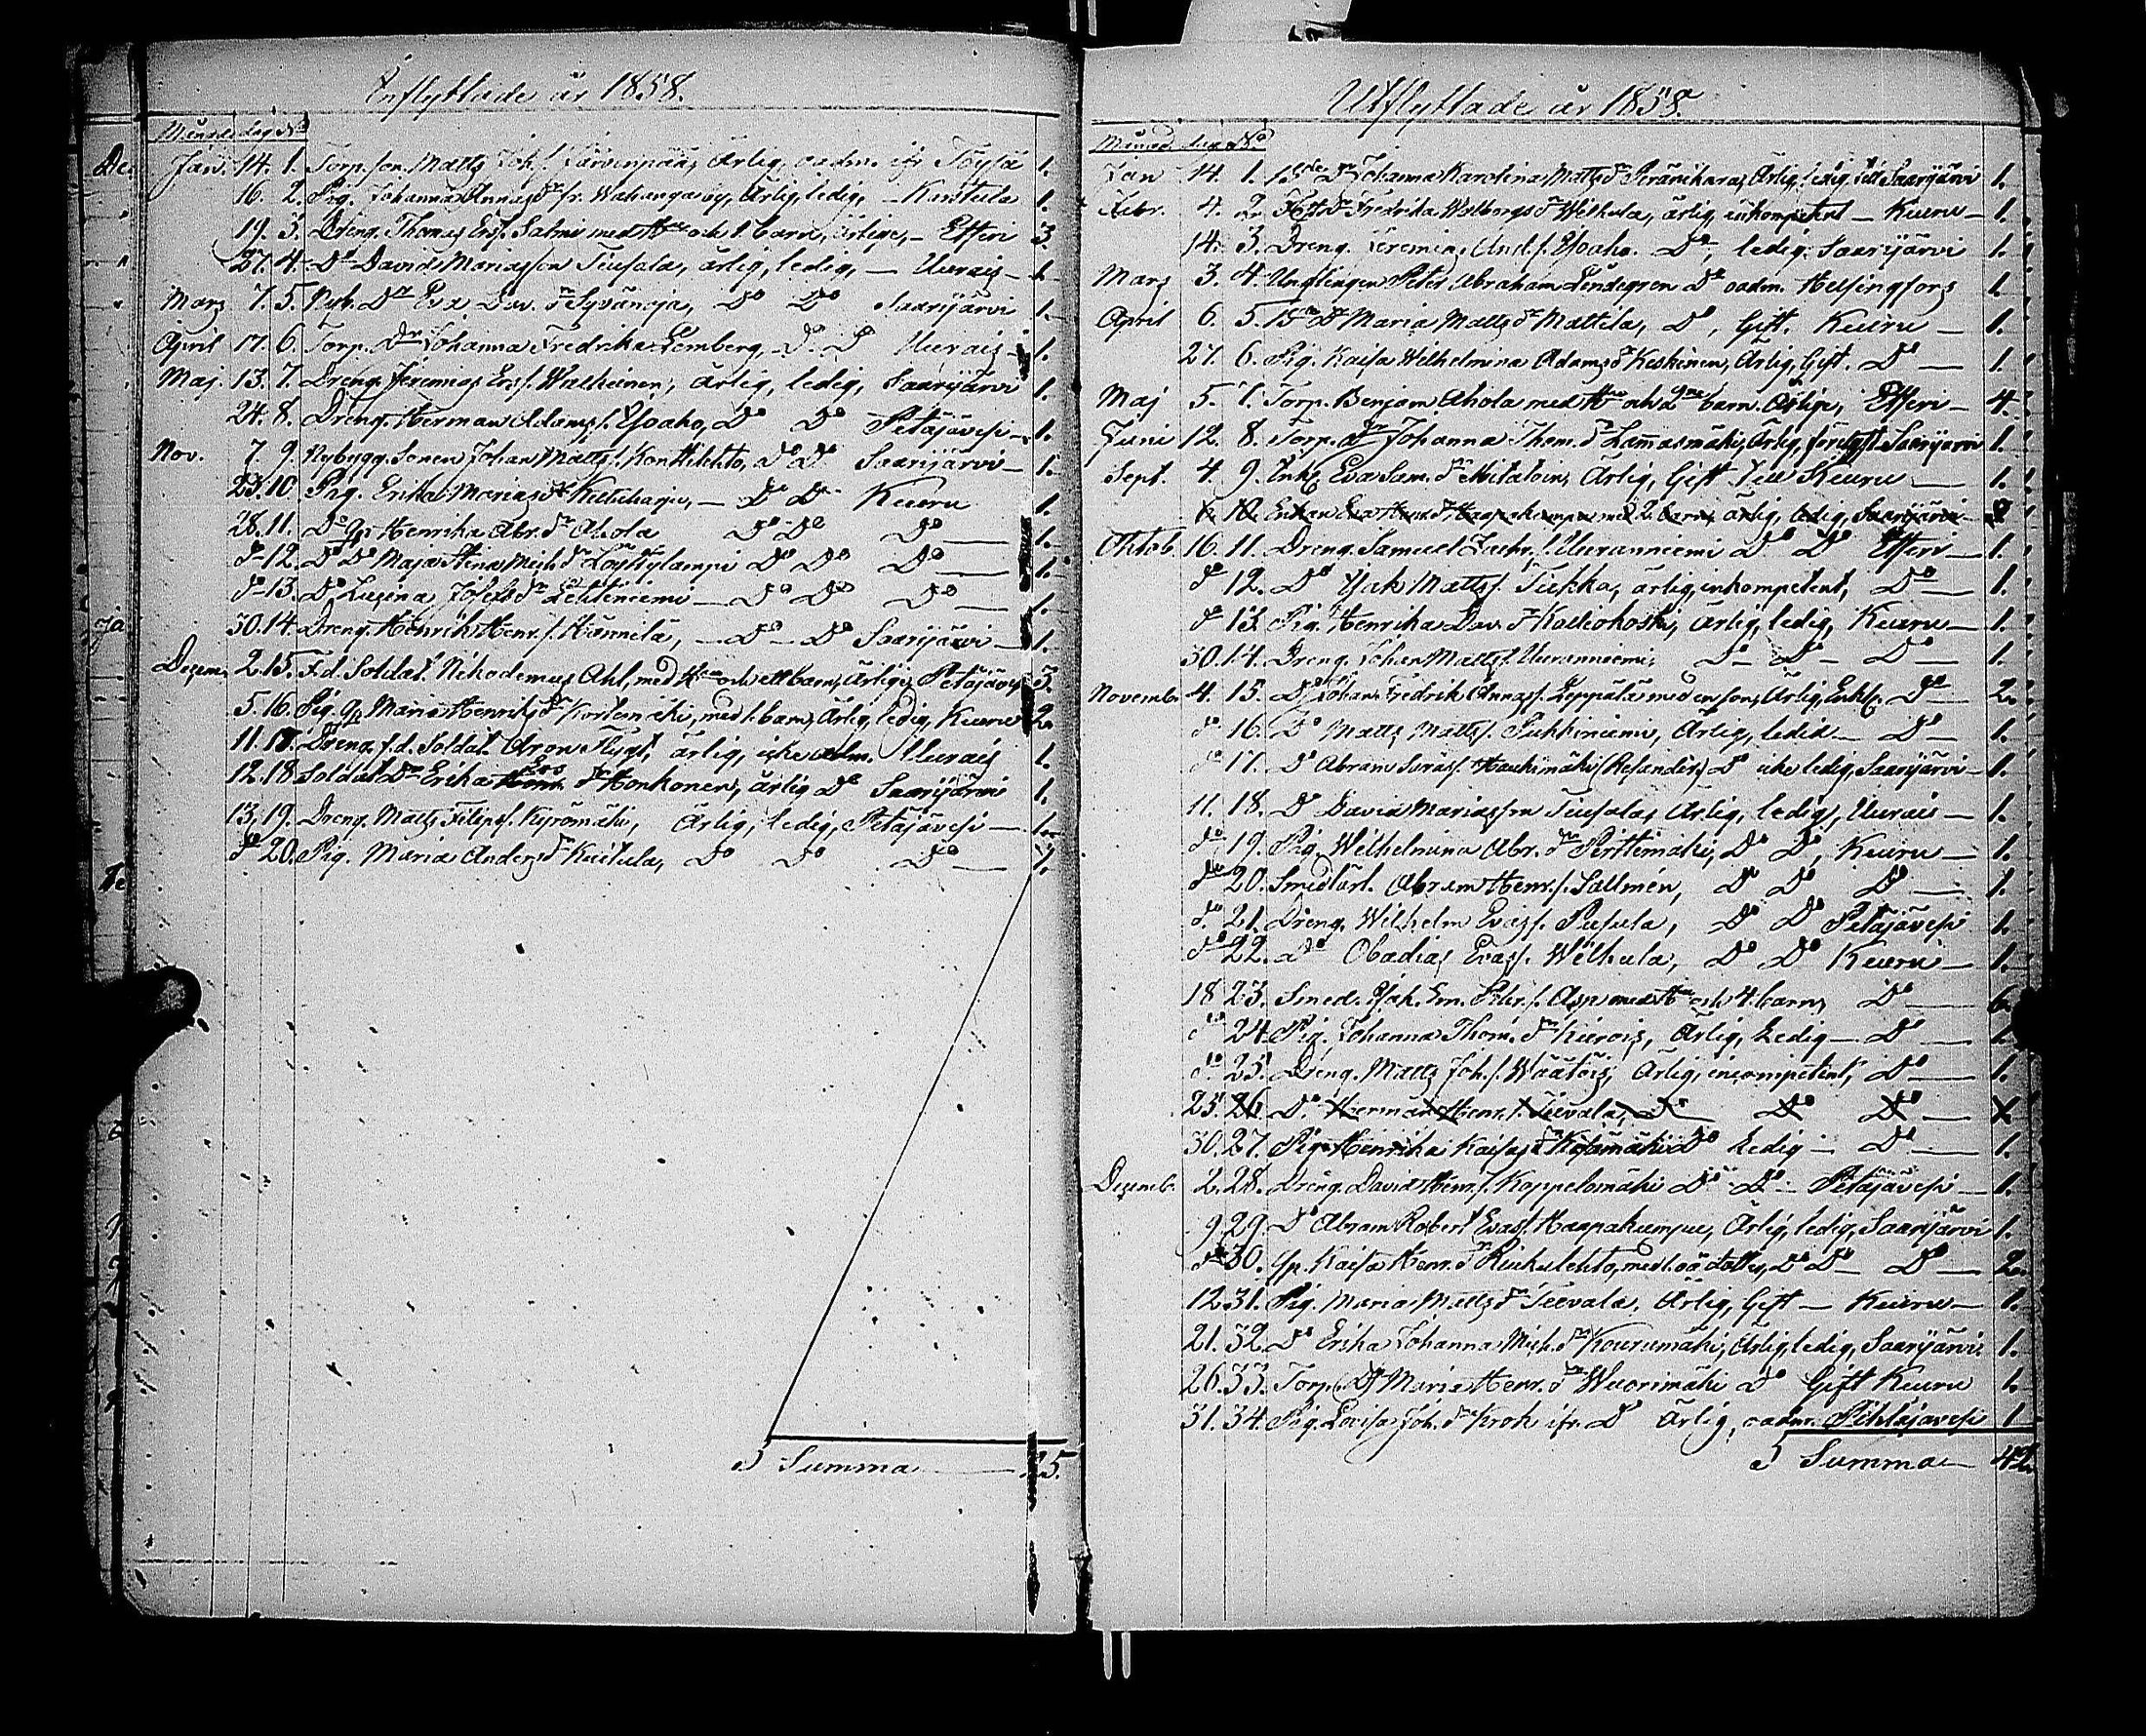 Inflyttade år 1858.
Månad dag No
Jan. 14. 1. Torp. son. Matts Joh. s. Järvenpää, Ärlig, oadm. ifr Töysä 1.
16. 2. Pig. Johanna Annasdr fr. Wahanga ärlig, ledig, Kontula 1.
19. 3. Dreng. Thomas Ers s. Salmi med Hu och 1. barn, ärlige, Etseri 3.
27. 4. Do David Mariasson Teusala, ärlig, ledig, Uurais 1
Mars 7. 5. Nyb. Dr Eva Dav. dr Syvänoja, Do Do Saarijärvi 1.
April 17. 6. Torp. Dr Johanna Fredrika Lemberg, Do Do Uurais 1.
Maj. 13. 7. Dreng. Jeremias Ers s. Walkeinen, ärlig, ledig, Saarijärvi 1.
24. 8. Dreng. Herman Adams s. Ysoaho, Do Do Petäjävesi 1.
Nov. 7. 9. Nybygg. Sonen Johan Matts s. Konttilehto, Do Do Saarijärvi 1.
23. 10. Pig. Erika Mariasdr Do Do Keuru 1
28. 11. Do Qp Henrika Abr. dr Ahola Do Do Do 1.
do 12. Do Do Maja Stina Mich. dr Löyttylampi Do Do Do 1.
do 13. Do Lusina Josefs dr Lehtiniemi Do Do Do 1.
30. 14. Dreng. Henrik Henr. s. Hännilä, Do Do Saarijärvi 1.
Dezem. 2. 15. F.d. Soldat. Nikodemus Ahl, med Hu och ett barn, Ärlige, Petäjäves 3.
5. 16. Pig. Qp Maria Henriks dr Kortemäki, med 1. barn, Ärlig, ledig, Keuru 2.
11. 17. Dreng. f.d. Soldat. Aron Flygt, ärlig, icke adm. Uurais 1
12. 18. Soldat Dr Erika Ers dr Honkonen, ärlig Do Saarijärvi 1.
13. 19. Dreng. Matts Filips s. Kyrömäki, Ärlig, ledig, Petäjävesi 1.
do 20. Pig. Maria Anders dr Kuitula, Do Do Do 1.
Summa 25.
Utflyttade år 1858.
Månad. dag No
Jan 14. 1. Dr Johanna Karolina Matts dr Peränkara, Ärlig, ledig, till Saarijärvi 1.
Febr. 4. 2. Dr Fredrika Walborgs dr Wilhula, ärlig, inkompetent Keuru 1.
14. 3. Dreng. Jeremias And. s. Ysoaho. Do, ledig. Saarijärvi 1.
Mars 3. 4. Unglingen Peter Abraham Lindegren Do oadm. Helsingfors 1.
April 6. 5. Dr Maria Matts dr Mattila, Do, Gift. Keuru 1.
27. 6. Pig. Kaisa Wilhelmina Adams dr Keskinen, Ärlig, Gift. Do 1.
Maj 5. 7. Torp. Benjam Ahola med Hu och 2ne barn. Ärlige, Etseri 4.
Juni 12. 8. Torp. Dr Johanna Thom. dr Lammasmäki, Ärlig, Saarijärvi 1.
Sept. 4. 9. Enk. Eva Sam. dr Ärlig, Gift till Keuru 1.
6. 10. Enkan Eva Henr. dr Haapakumpu med 2. barn, ärlig, ledig, Saarijärvi
Oktob. 16. 11. Dreng. Samuel Zachr. s. Uuranniemi Do Do Etseri 1.
do 12. Do Isak Matts s. Tukka, ärlig, inkompetent, Do 1.
do 13. Pig. Henrika Dav. dr Kaliokoski, ärlig, ledig, Keuru 1.
30. 14. Dreng. Johan Matts s. Uuranniemi, Do Do Do 1.
Novemb. 4. 15. Do Johan Fredrik Annas s. Leppälä med en son, Ärlig, Enkl. Do 2.
do 16. Do Matts Matts s. Pukkiniemi, Ärlig, ledid Do 1.
do 17. Do Abram Saras s. Haukimäki (Resander) Do icke ledig, Saarijärvi 1.
11. 18. Do David Mariasson Teusala, Ärlig, ledig, Uurais 1.
do 19. Pig. Wilhelmina Abr. dr Perttimäki, Do Do, Keuru 1.
do 20. Smedlärl. Abram Henr. s. Sallmén, Do Do Do 1.
do 21. Dreng. Wilhelm Evas s. Pusula, Do Do Petäjävesi 1.
do 22. Do Obadias Evas s. Wilhula, Do Do Keuru 1.
18 23. Smed. Joh. Em. Petr. s. Asp med Hu och 4. barn, Do 6.
do 24. Pig. Johanna Thom. dr Kierois, Ärlig, Ledig Do 1.
do 25. Dreng. Matts Joh. s. Wäätöis, Ärlig, incompetent, Do 1.
25. 26. Do Herman Henr. s. Teevala, Do Do Do
30. 27. Pig. Henrika Kaisas dr Kesämäki Do Ledig Do 1.
Dezemb. 2. 28. Dreng. David Henr. s. Koppelomäki Do Do Petäjävesi 1.
9. 29. Do Abram Robert Evas s. Haapakumpu, Ärlig, ledig, Saarijärvi 1.
do 30. Qp. Kaisa Henr. dr Riuhulehto, med 1. oä dotter, Do Do Do 2.
12. 31. Pig. Maria Matts dr Teevala, Ärlig, Gift Keuru 1.
21. 32. Do Erika Johanna Mich. dr Kourumäki, Ärlig, ledig, Saarijärvi. 1.
26. 33. Torp. Dr Maria Henr. dr Wuorimäki Do Gift Keuru 1.
31. 34. Pig. Lovisa Joh. dr Krok ifr. Do Ärlig, oadm. Pihlajavesi 1
Summa 42.